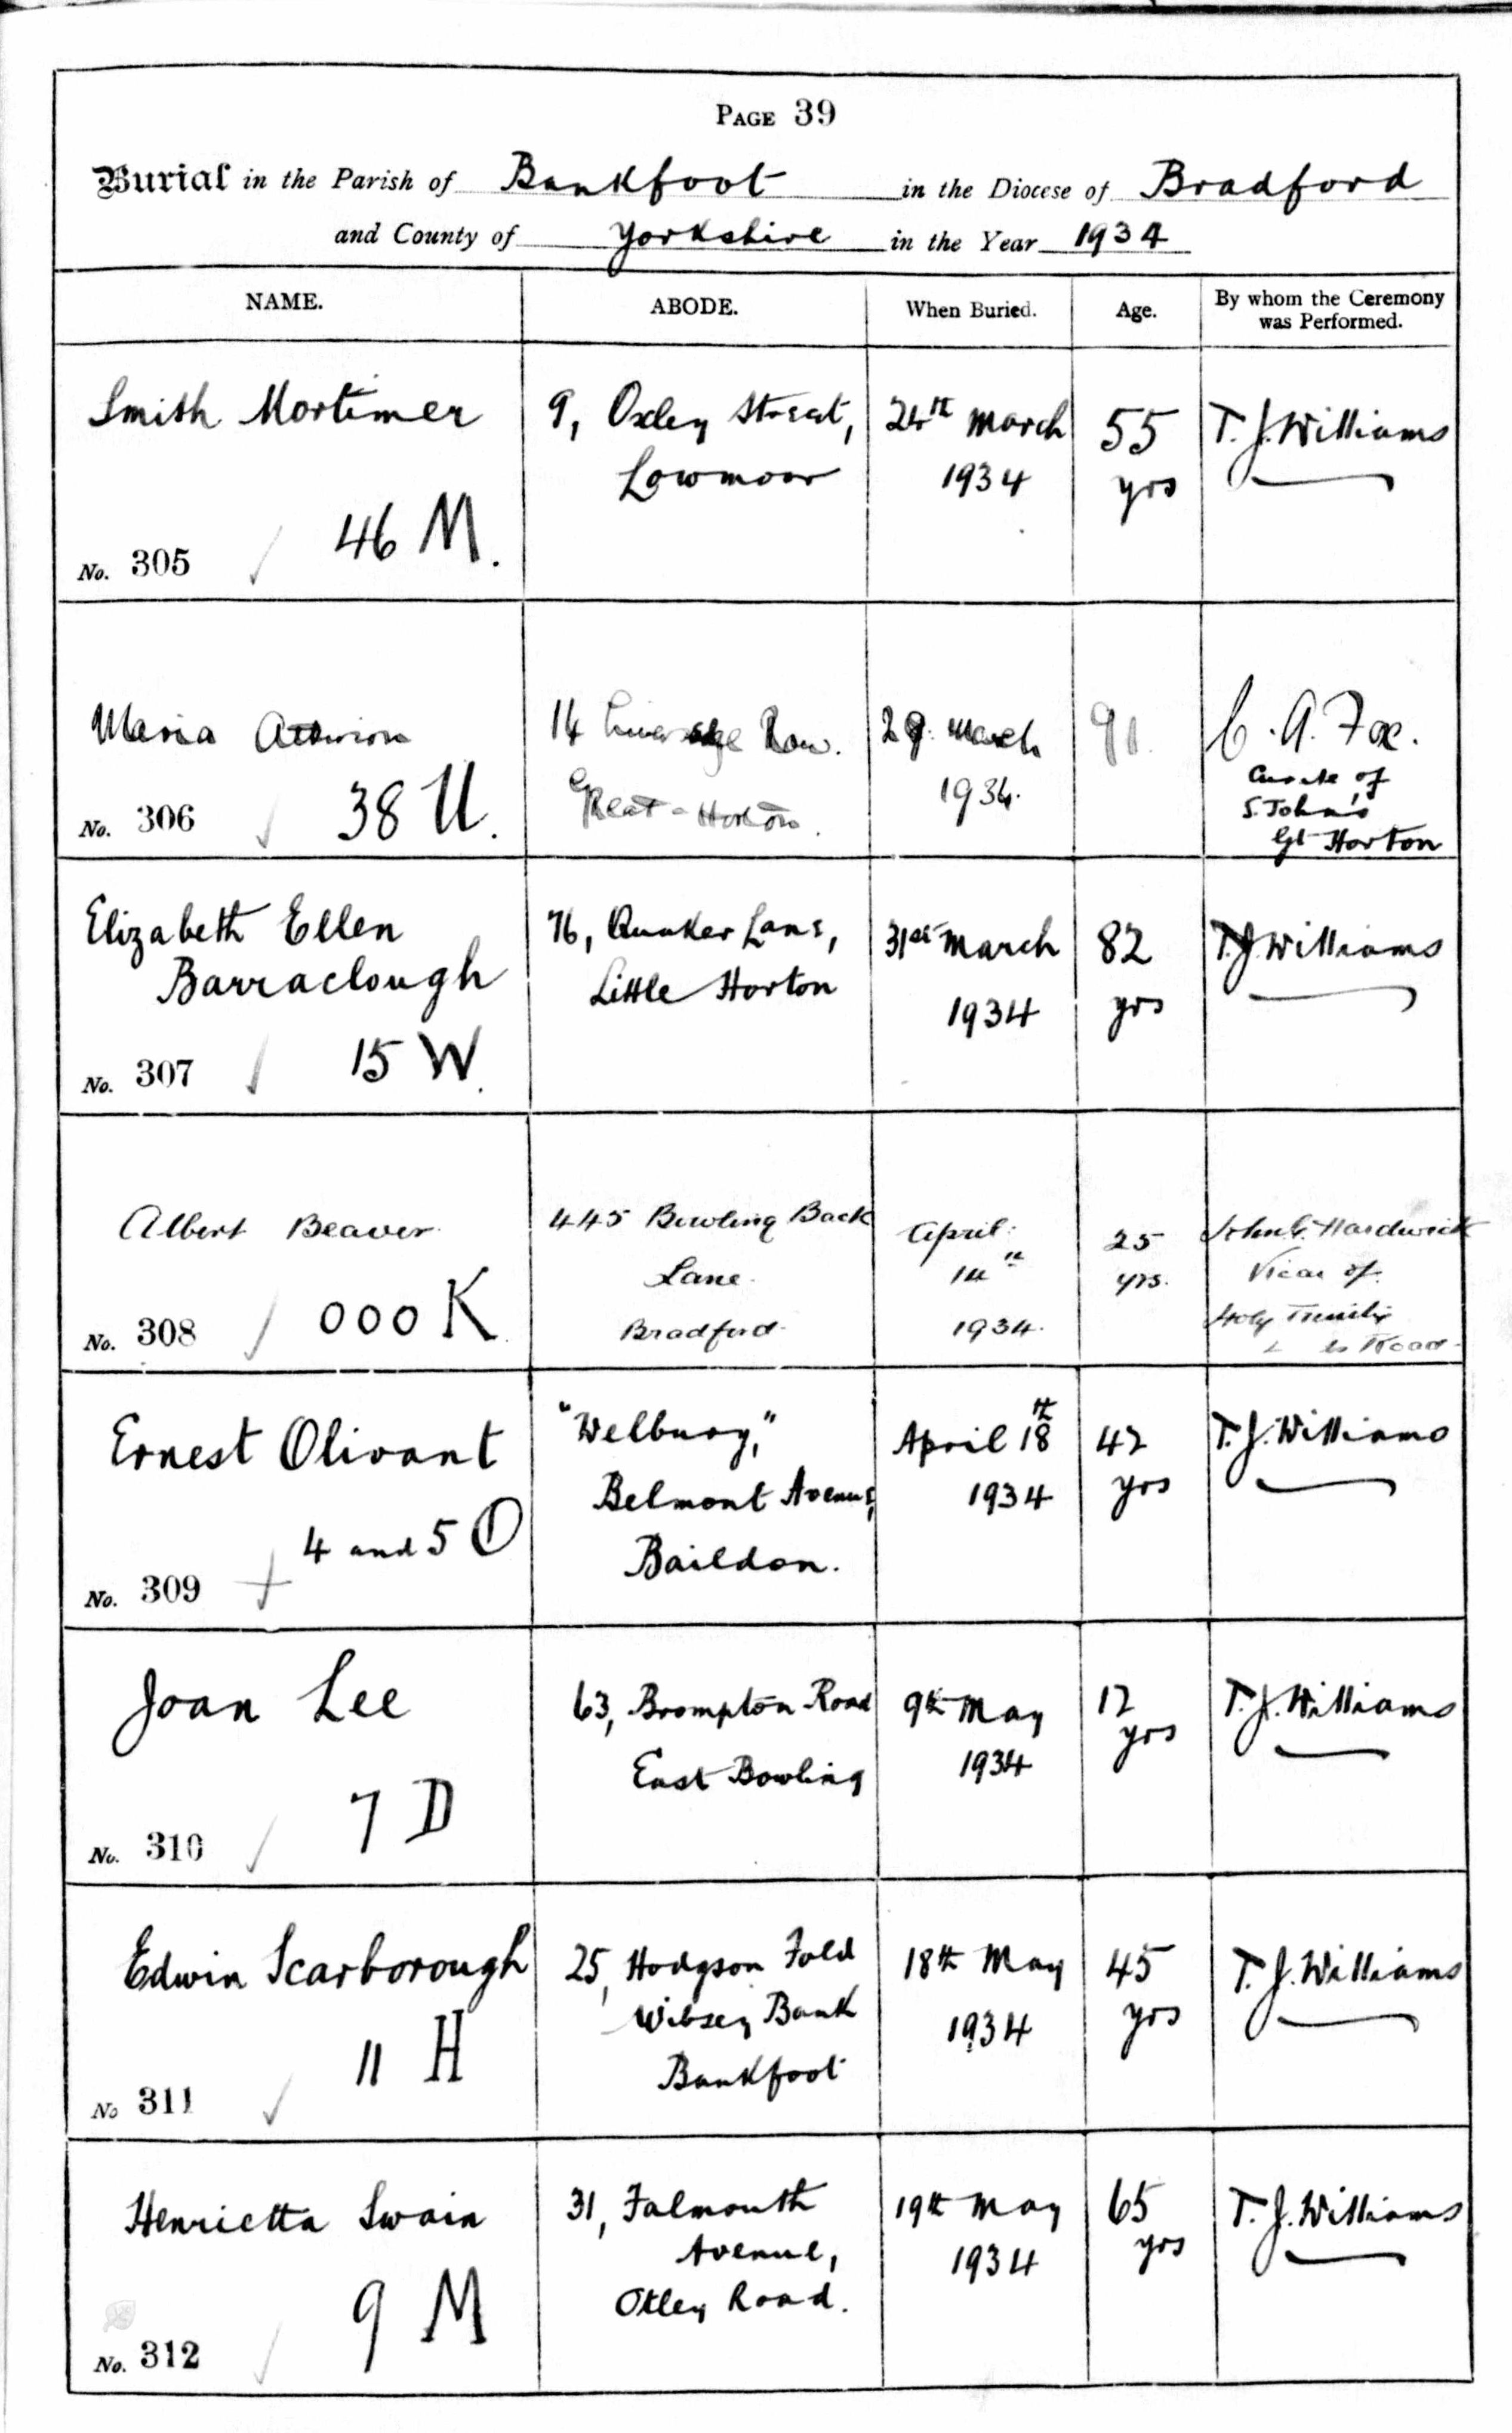 PAGE 39
Burial in the Parish of Bankfoot in the Diocese of Bradford
and County of Yorkshire in the Year 1934
NAME. ABODE. When Buried. Age. By whom the Ceremony was Performed.
Smith Mortimer
9, Oxley Street,
Lowmoor
24th March
1934
55
yrs
T. J. Williams
46 M.
No. 305
Maria
14 Row.
Great-Horton.
March
1934.
91
C. A. Fox.
Curate of
S. John's
Gt Horton
38 U.
No. 306
Elizabeth Ellen
Barraclough
76, Quaker Lane,
Little Horton
31st March
1934
82
yrs
T. J. Williams
15 W.
No. 307
Albert Beaver
445 Bowling Back
Lane
Bradford
April
1934.
25
yrs.
Hardwick
Vicar of
Holy Trinity
Road
000 K
No. 308
Ernest Olivant
"Welbury,"
Belmont Avenue,
Baildon.
April 18th
1934
42
yrs
T. J. Williams
4 and 5 O
No. 309
Joan Lee
63, Brompton Road
East Bowling
9th May
1934
12
yrs
T. J. Williams
7 D
No. 310
Edwin Scarborough
25, Hodgson Fold
Wibsey Bank
Bankfoot
18th May
1934
45
yrs
T. J. Williams
11 H
No 311
Henrietta Swain
31, Falmouth
Avenue,
Otley Road.
19th May
1934
65
yrs
T. J. Williams
9 M
No. 312